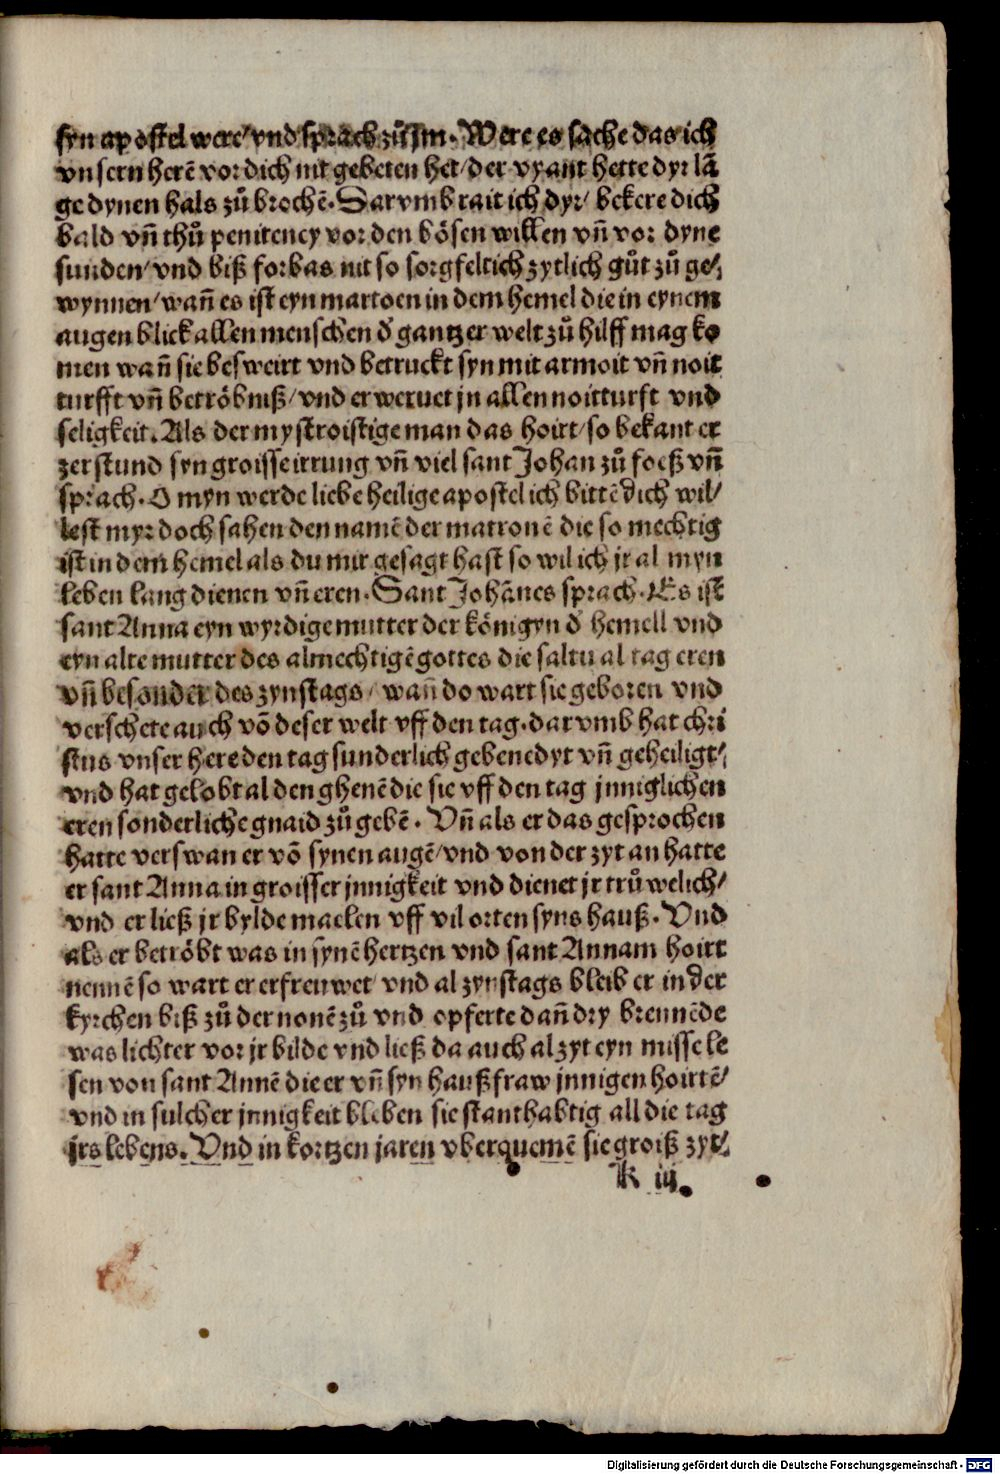 syn apostel were/ vnd sprach zů jm. Were es sache das ich
vnsern herē vor dich nit gebeten het/ der vyant hette dyr lā
ge dynen hals zů brochē. Darvmb rait ich dyr/ bekere dich
bald vn̄ thů penitency vor den bösen willen vn̄ vor dyne
sunden/ vnd biß forbas nit so sorgfeltich zytlich gůt zů ge/
wynnen/ wan̄ es ist eyn martoen in dem hemel die in eynem
augenblick allen menschen d̕ gantzer welt zů hilff mag ko
men wan̄ sie besweirt vnd betruckt syn mit armoit vn̄ noit
turfft vn̄ betröbniß/ vnd erweruet jn allen noitturft vnd
seligkeit. Als der mystroistige man das hoirt/ so bekant er
zerstund syn groisse irrung vn̄ viel sant Johan zů foeß vn̄
sprach. O myn werde liebe heilige apostel ich bittē dich wil/
lest myr doch sahen den namē der matronē die so mechtig
ist in dem hemel als du mir gesagt hast so wil ich jr al myn
leben lang dienen vn̄ eren. Sant Johānes sprach. Es ist
sant Anna eyn wyrdige mutter der königyn d̕ hemell vnd
eyn alte mutter des almechtigē gottes die saltu al tag eren
vn̄ besonder des zynstags/ wan̄ do wart sie geboren vnd
verschete auch vō deser welt vff den tag. darvmb hat chri
stus vnser here den tag sunderlich gebenedyt vn̄ geheiligt/
vnd hat gelobt al den ghenē die sie vff den tag jnniglichen
eren sonderliche gnaid zů gebē. Vn̄ als er das gesprochen
hatte verswan er vō synen augē/ vnd von der zyt an hatte
er sant Anna in groisser jnnigkeit vnd dienet jr trůwelich/
vnd er ließ jr bylde maelen vff vil orten syns hauß. Vnd
als er betröbt was in synē hertzen vnd sant Annam hoirt
nennē so wart er erfreuwet/ vnd al zynstags bleib er in der
kyrchen biß zů der nonē zů vnd opferte dan̄ dry brennēde
was lichter vor jr bilde vnd ließ da auch al zyt eyn misse le
sen von sant Annē die er vn̄ syn haußfraw jnnigen hoirtē/
vnd in sulcher jnnigkeit bleben sie stanthabtig all die tag
jrs lebens. Vnd in kortzen jaren vberquemē sie groiß zyt/
k iij.
Digitalisierung gefördert durch die Deutsche Forschungsgemeinschaft - DFG